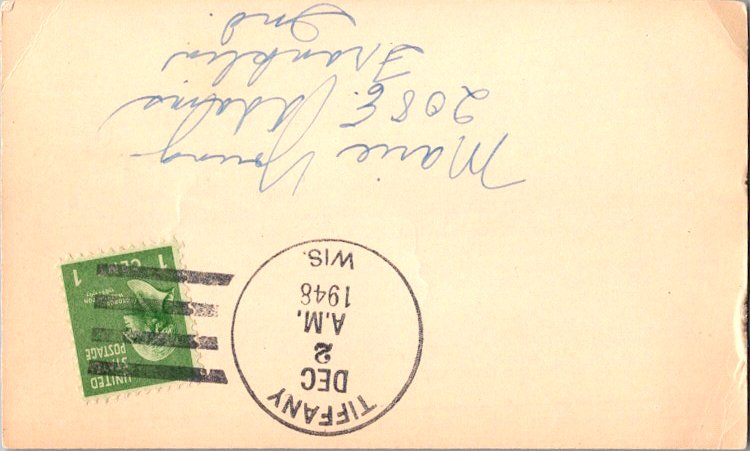 TIFFANY
DEC
2
A.M.
1948
WIS.
UNITED
STATES
POSTAGE
1 CENT 1
Marie Young
208 E. Adams
Franklin
Ind.